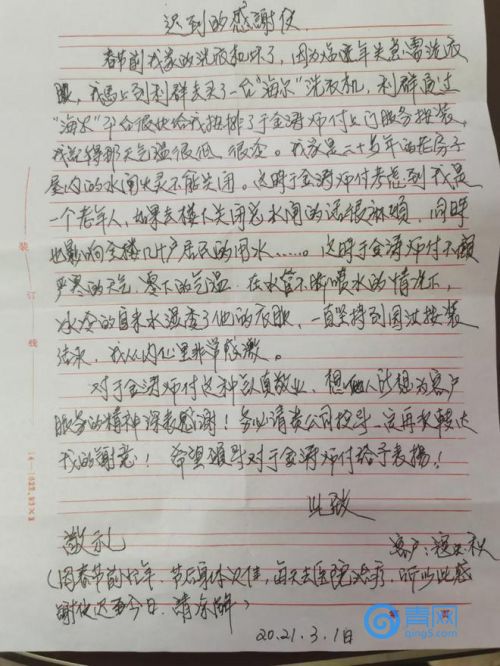 迟到的感谢信
春节前我家的洗衣机坏了，因为临近年关急需洗衣
服，我马上到利群去买了一台“海尔”洗衣机，利群通过
“海尔”平台很快给我按排了于金涛师付上门服务按装，
我记得那天气温很低，很冷。我家是二十多年的老房子
屋内的水闸失灵不能关闭。这时于金涛师付考虑到我是
一个老年人，如果去楼下关闭总水闸的话很麻烦，同时
也影响全楼几十户居民的用水……。这时于金涛师付不顾
严寒的天气，零下的气温，在水管不断喷水的情况下，
冰冷的自来水湿透了他的衣服，一直坚持到调试按装
结束，我从内心里非常感激。
对于金涛师付这种认真敬业，想他人所想为客户
服务的精神深表感谢！务必请贵公司领导一定再次转达
我的谢意！希望领导对于金涛师付给予表扬！
此致
敬礼
客户：
（因春节前忙年，节后身体欠佳，每天去医院治疗，所以此感
谢信迟至今日，请谅解）
2021.3.1日
装订线
青网
qing5.com